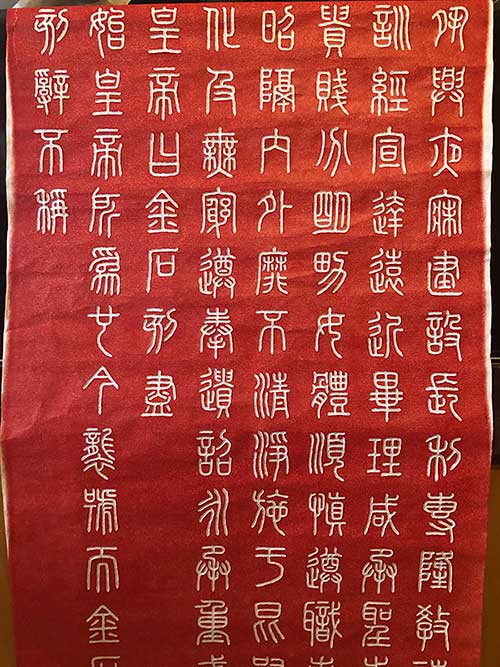 夙興夜寐建設長利專隆教誨
訓經宣達遠近畢理咸承聖
貴賤分明男女體順慎遵職事
昭隔內外靡不清淨施于昆嗣
化及無窮遵奉遺詔永承重戒
皇帝曰金石刻盡
始皇帝所為也今襲號而金石
刻辭不稱